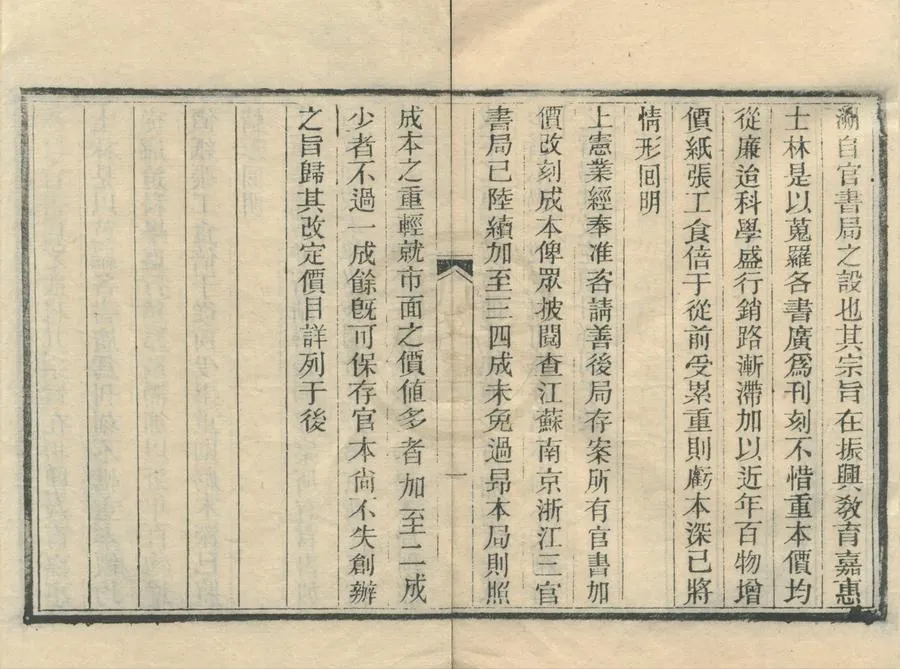 溯自官書局之設也其宗旨在振興敎育嘉惠
士林是以蒐羅各書廣爲刊刻不惜重本價均
從廉迨科學盛行銷路漸滯加以近年百物增
價紙張工食倍于從前受累重則虧本深已將
情形回明
上憲業經奉准咨請善後局存案所有官書加
價改刻成本俾眾披閱查江蘇南京浙江三官
書局已陸續加至三四成未免過昂本局則照
一
成本之重輕就市面之價値多者加至二成
少者不過一成餘旣可保存官本尙不失創辦
之旨歸其改定價目詳列于後